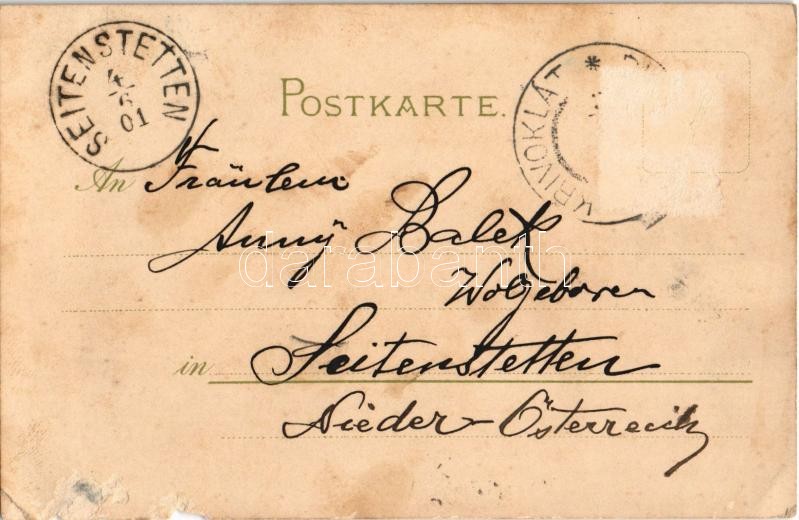 SEITENSTETTEN
4/6 01
POSTKARTE.
KŘIVOKLÁT *
An Fräulein
Anny Balek
Wolgeboren
darabanth
in Seitenstetten
Nieder-Österreich